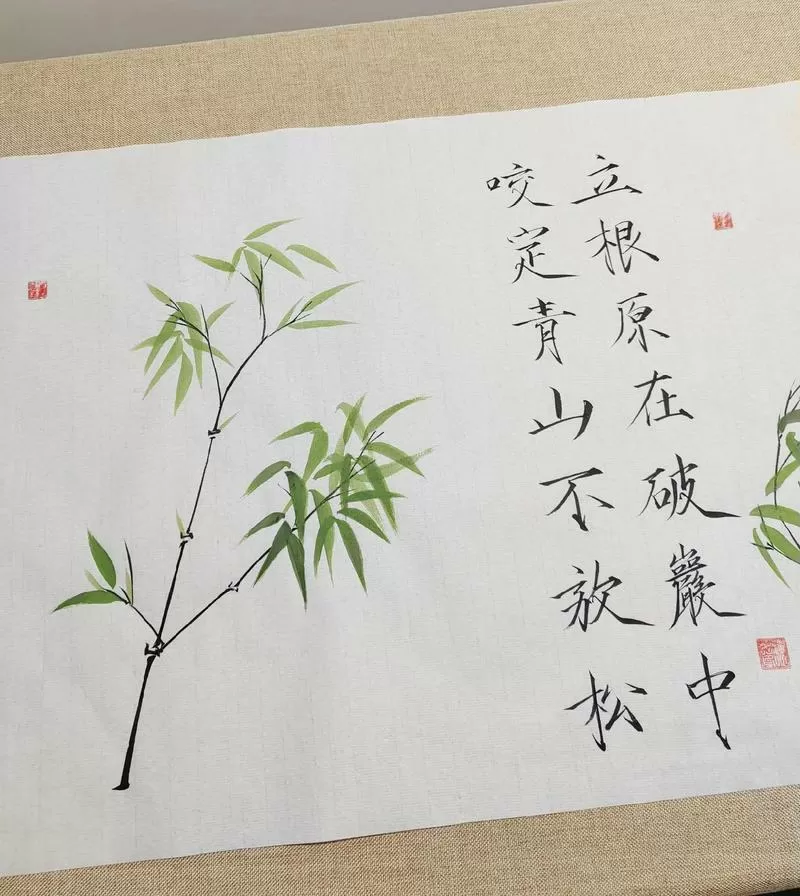 咬定青山不放松
立根原在破巖中